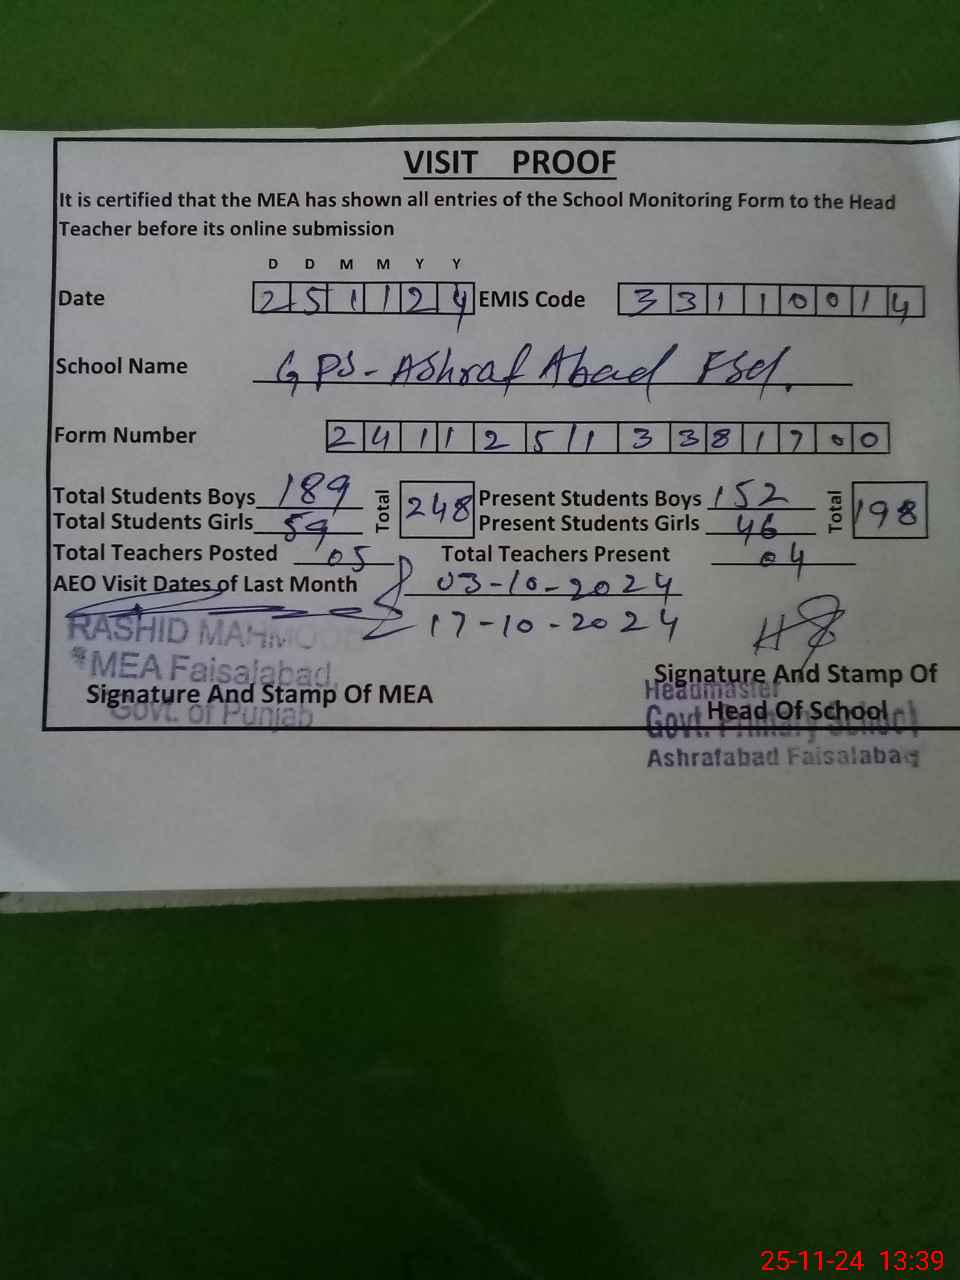 VISIT PROOF
It is certified that the MEA has shown all entries of the School Monitoring Form to the Head
Teacher before its online submission
D D M M Y Y
Date 2 5 1 1 2 4 EMIS Code 3 3 1 1 0 0 1 4
School Name GPS-Ashraf Abad Fsd.
Form Number 2 4 1 1 2 5 1 1 3 3 8 1 7 0 0
Total Students Boys 189 Total 248 Present Students Boys 152 Total 198
Total Students Girls 59 Present Students Girls 46
Total Teachers Posted 05 Total Teachers Present 04
AEO Visit Dates of Last Month 03-10-2024
17-10-2024
RASHID MAHMOOD
MEA Faisalabad,
Signature And Stamp Of MEA
Govt. of Punjab
Signature And Stamp Of
Headmaster
Head Of School
Govt. Primary School
Ashrafabad Faisalabad
25-11-24 13:39